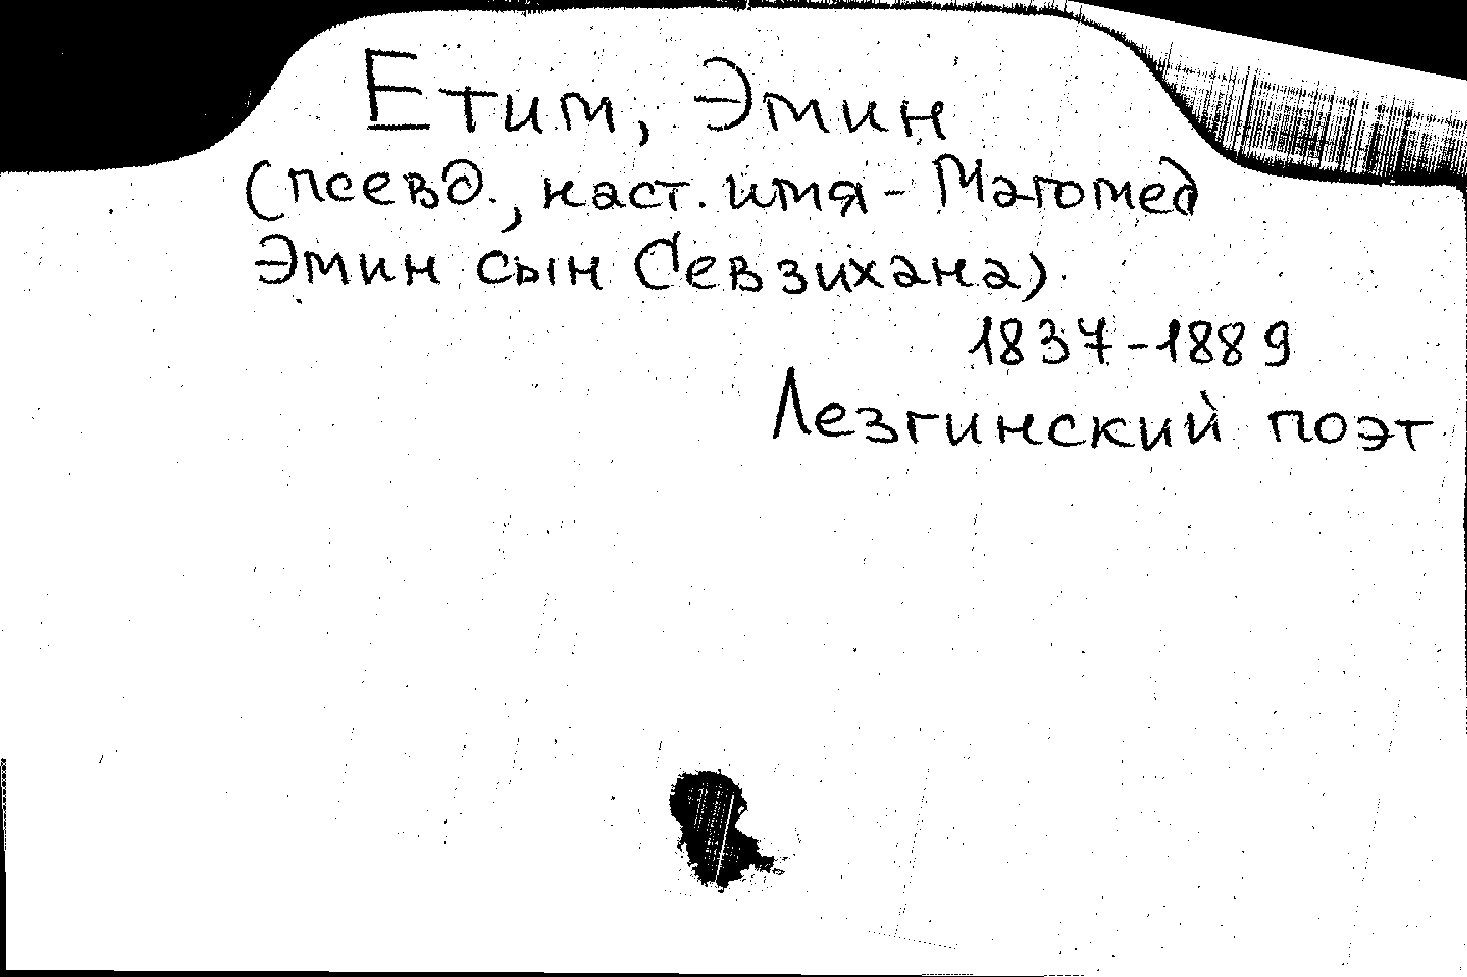 Етим, Эмин
(псевд., наст. имя - Магомед
Эмин сын Севзихана).
1837-1889
Лезгинский поэт